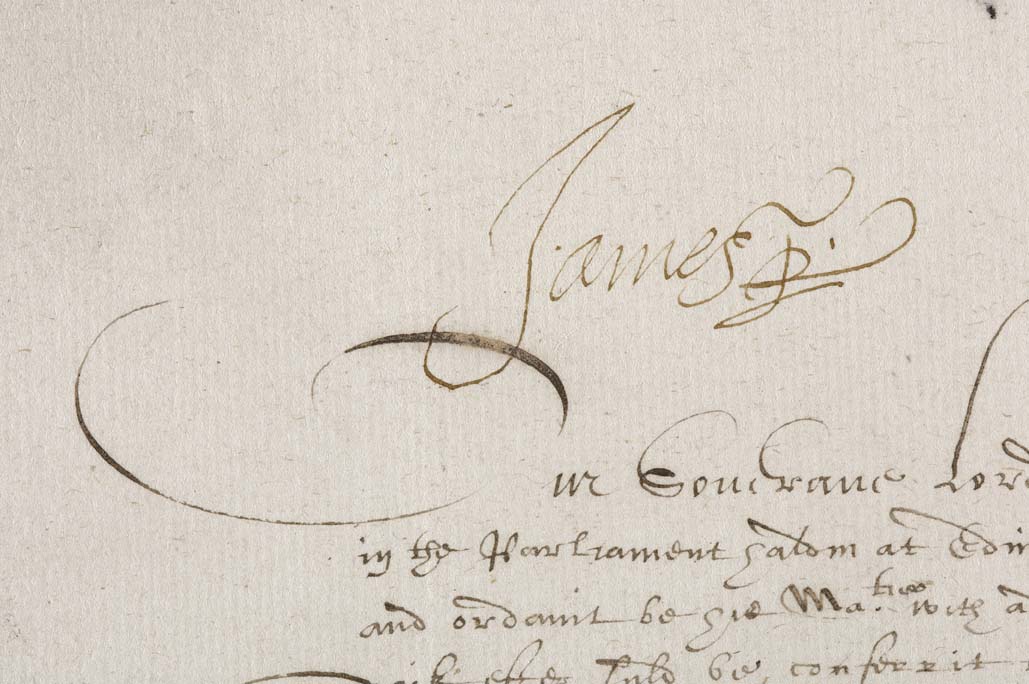 James R.
Our Soverane Lord
in the Parliament haldin at Edin
and ordanit be his Ma.ties with a
be conferrit